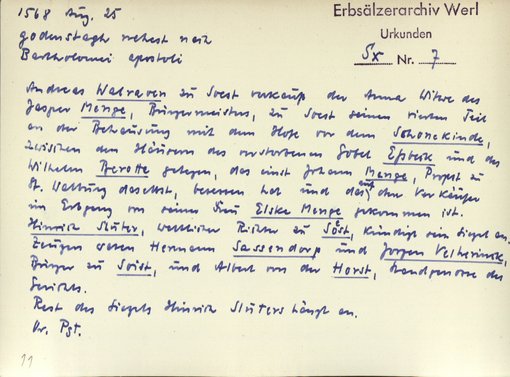 1568 Aug. 25
godenstagh nehest nach
Bartholomei apostoli
Erbsälzerarchiv Werl
Urkunden
Sx Nr. 7
Andreas Walraven zu Soest verkauft der Anna Witwe des
Jasper Menge, Bürgermeisters, zu Soest seinen vierten Teil
an der Behausung mit dem Hofe vor dem Schonekinde,
zwischen den Häusern des verstorbenen Gobel Epbeik und des
Wilhelm Berotte gelegen, das einst Johann Menge, Propst zu
St. Walburg daselbst, besessen hat und das auf den Verkäufer
im Erbgang von seiner Frau Elske Menge gekommen ist.
Hinrich Sluter, weltlicher Richter zu Soest, kündigt sein Siegel an.
Zeugen waren Hermann Sassendorp und Jorgen Velherinck,
Bürger zu Soist, und Albert von der Horst, Standgenosse des
Gerichts.
Rest des Siegels Hinrich Sluters hängt an.
Or. Pgt.
11